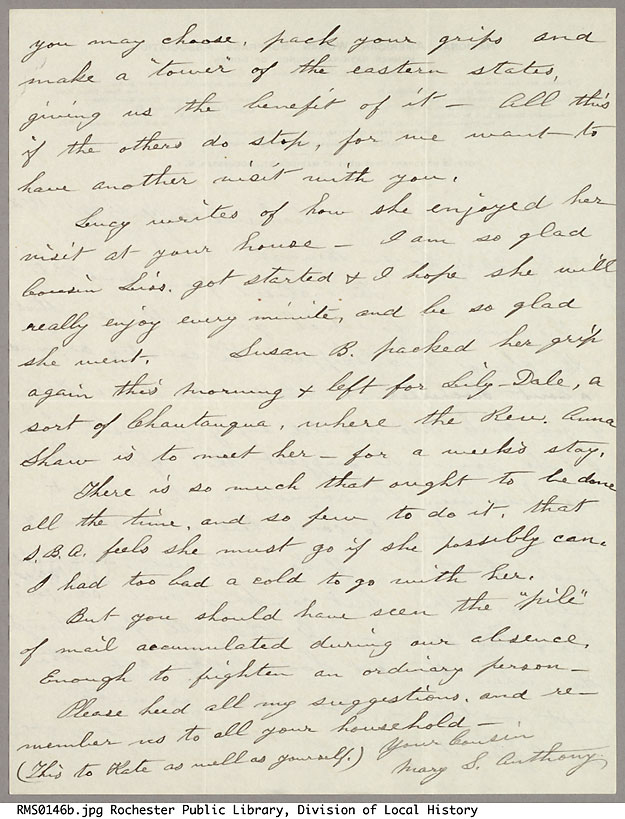 you may choose, pack your grips and
make a "tower" of the eastern states,
giving us the benefit of it — All this
if the others do stop, for we want to
have another visit with you.
Lucy writes of how she enjoyed her
visit at your house — I am so glad
Cousin Liss. got started & I hope she will
really enjoy every minute, and be so glad
she went. Susan B. packed her grip
again this morning & left for Lily-Dale, a
sort of Chautauqua, where the Rev. Anna
Shaw is to meet her — for a week's stay.
There is so much that ought to be done
all the time, and so few to do it, that
S.B.A. feels she must go if she possibly can.
I had too bad a cold to go with her.
But you should have seen the "pile"
of mail accumulated during our absence,
Enough to frighten an ordinary person —
Please heed all my suggestions, and re-
member us to all your household —
(This to Kate as well as yourself.) Your Cousin
Mary S. Anthony
RMS0146b.jpg Rochester Public Library, Division of Local History